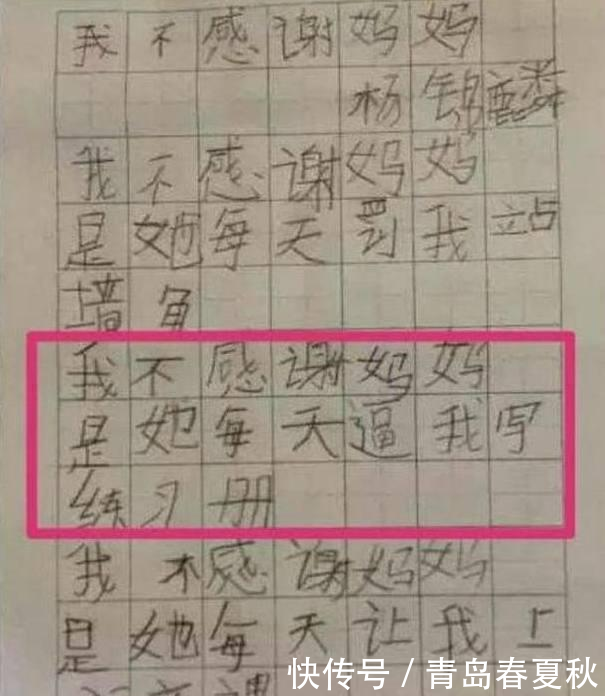 我不感谢妈妈
杨锦麟
我不感谢妈妈
是她每天罚我站
墙角
我不感谢妈妈
是她每天逼我写
练习册
我不感谢妈妈
是她每天让我上
快传号/青岛春夏秋